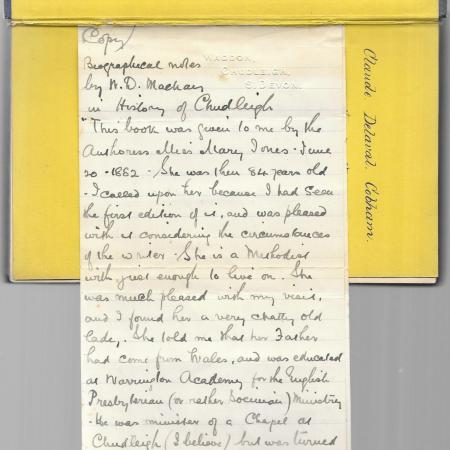 Copy
WADDON,
CHUDLEIGH,
S. DEVON.
Biographical notes
by W. D. Mackay
in History of Chudleigh
"This book was given to me by the
Authoress Miss Mary Jones - June
20 - 1882 - She was then 84 years old
- I called upon her because I had seen
the first edition of it, and was pleased
with it considering the circumstances
of the writer - She is a Methodist
with just enough to live on. She
was much pleased with my visit,
and I found her a very chatty old
lady. She told me that her Father
had come from Wales, and was educated
at Warrington Academy for the English
Presbyterian (or rather Socinian) Ministry
- He was minister of a Chapel at
Chudleigh (I believe) but was turned
Claude Delaval Cobham.